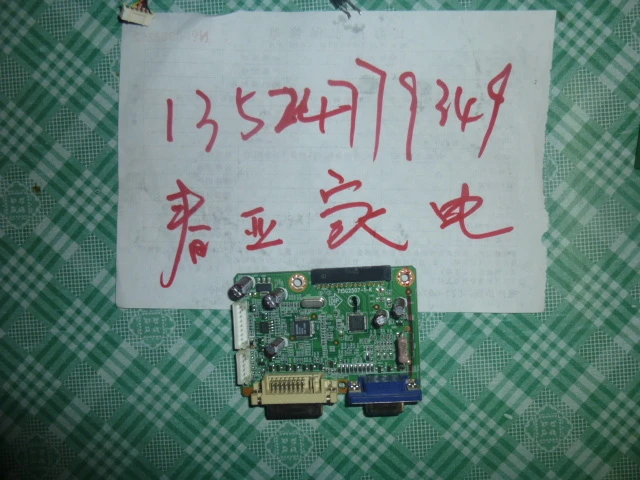 13524779349
春亚家电